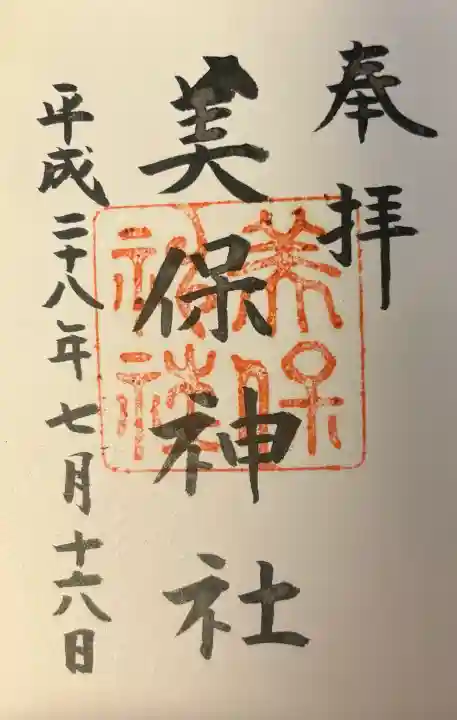 奉拝
美保神社
平成二十八年七月十六日
美保
神社